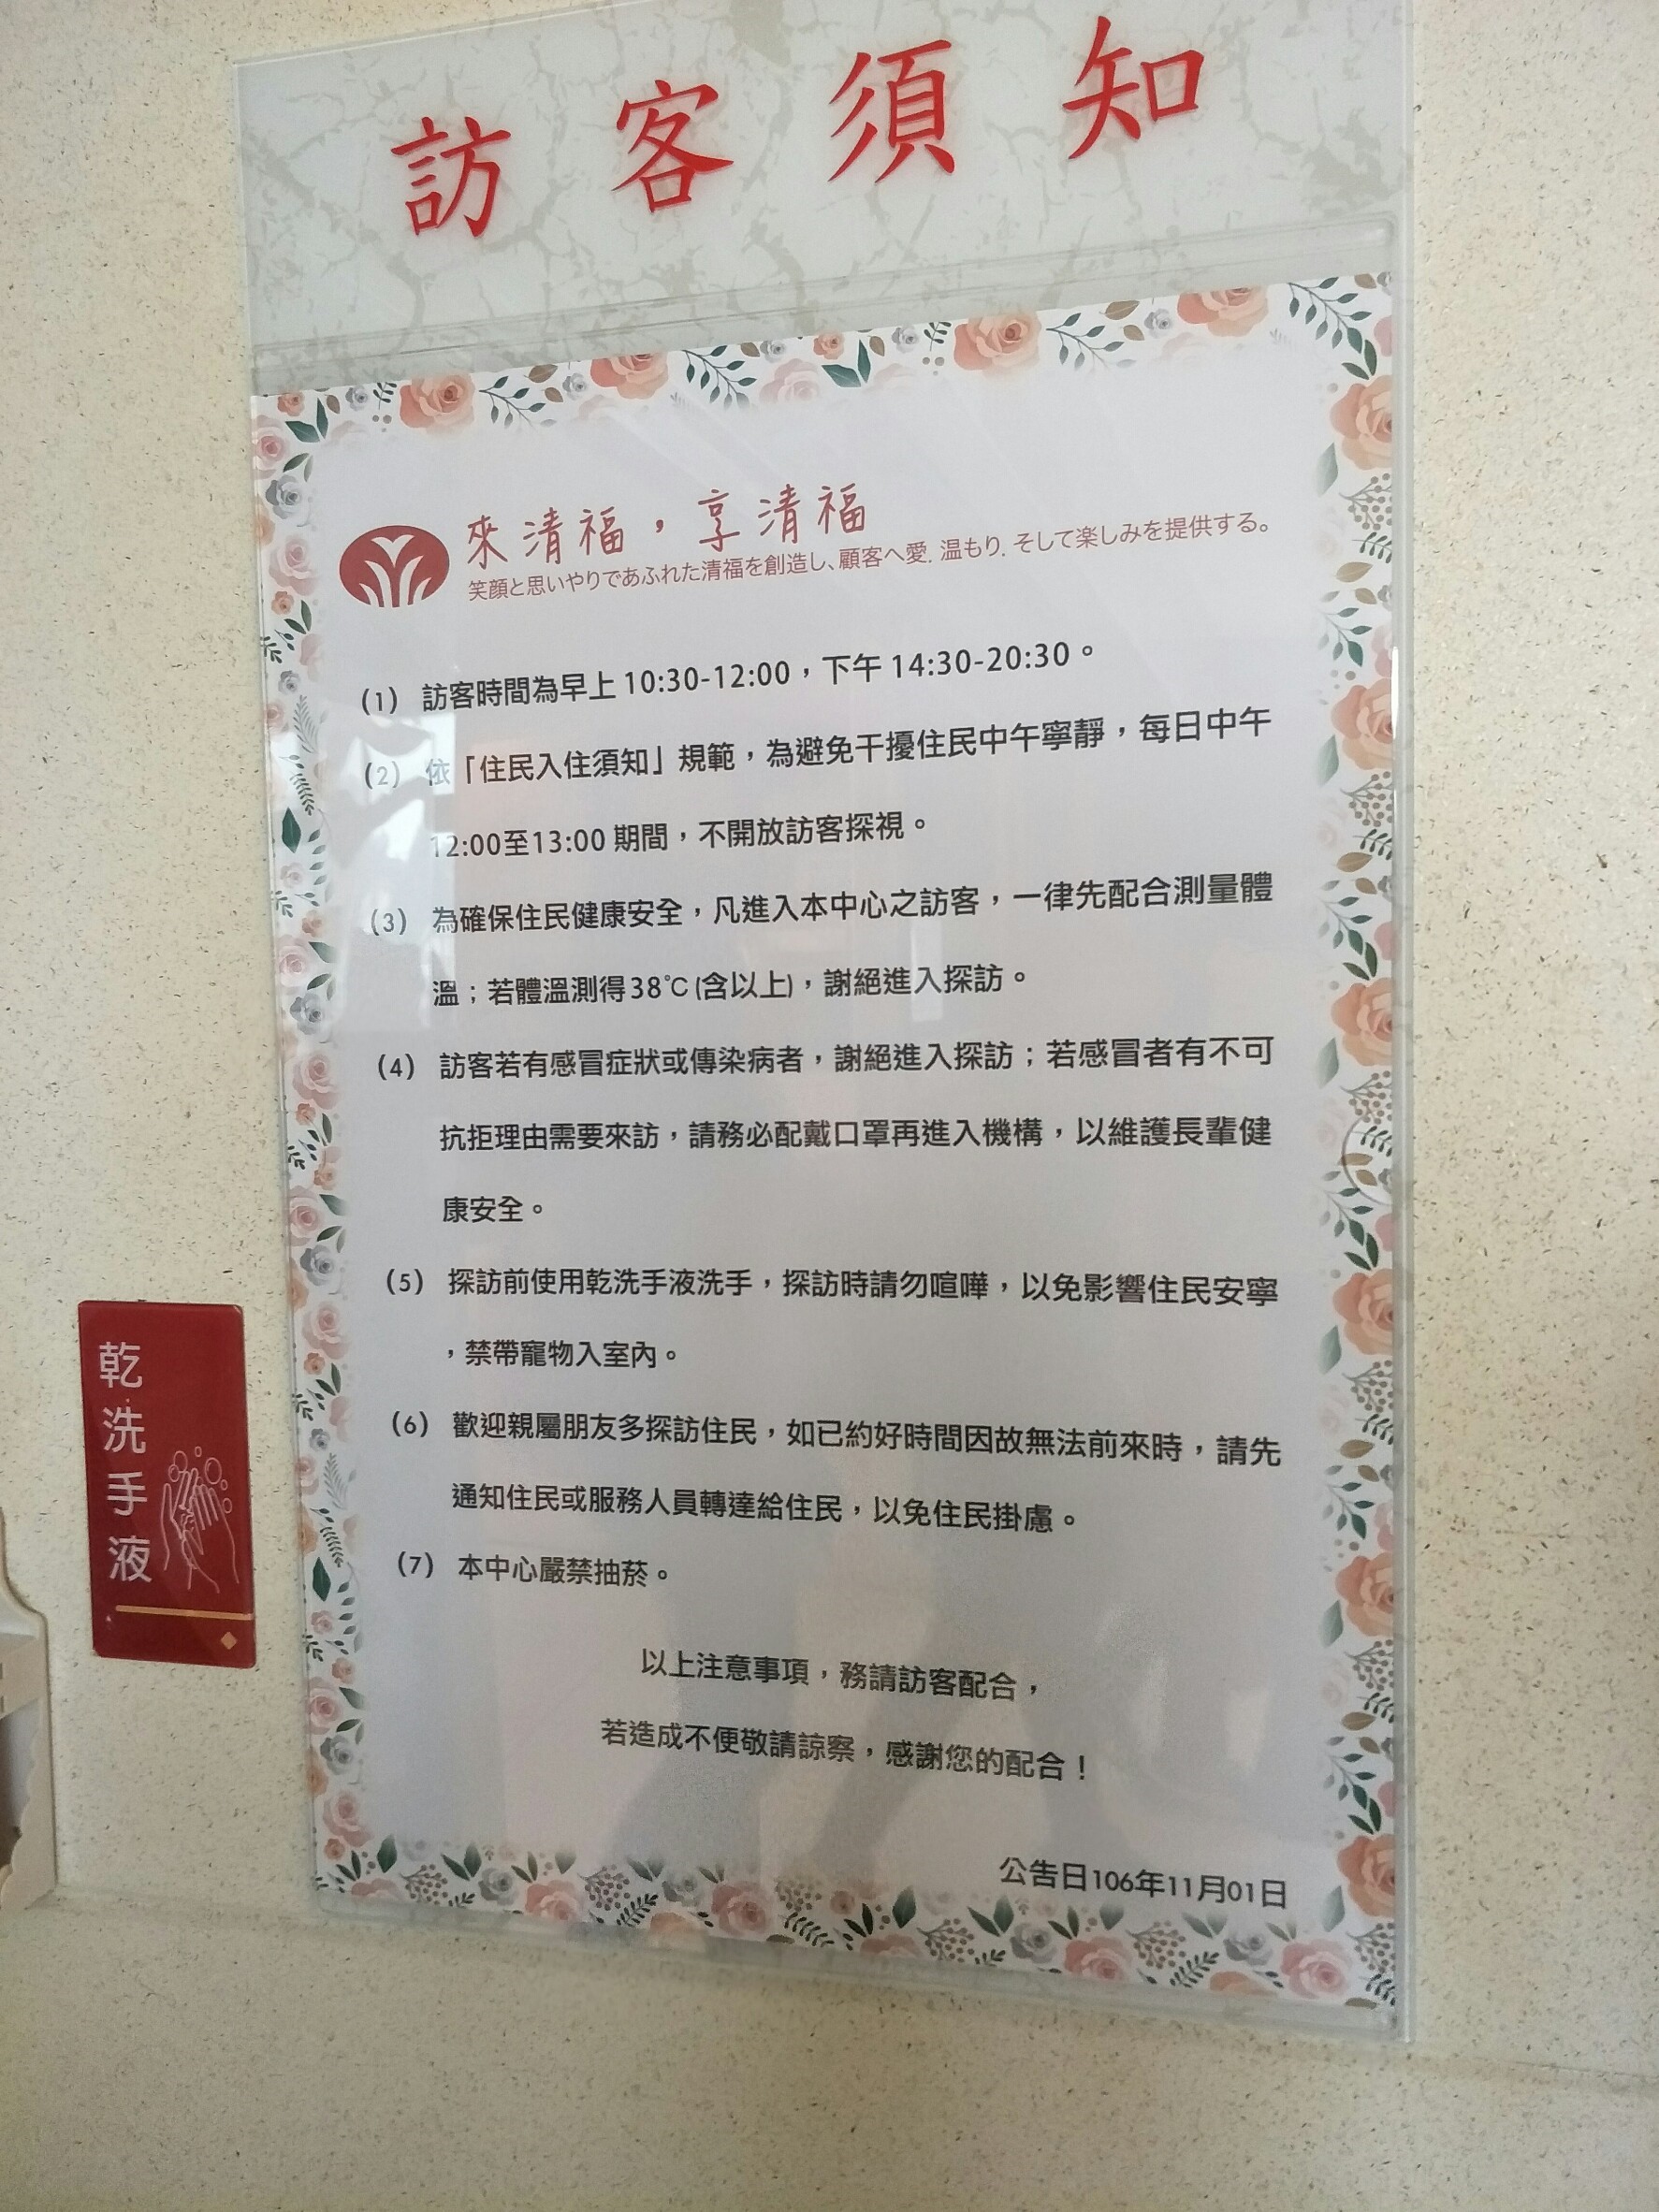 訪客須知
來清福，享清福
笑顔と思いやりであふれた清福を創造し、顧客へ愛. 温もり. そして楽しみを提供する。
(1) 訪客時間為早上 10:30-12:00，下午 14:30-20:30。
(2) 依「住民入住須知」規範，為避免干擾住民中午寧靜，每日中午
12:00至13:00 期間，不開放訪客探視。
(3) 為確保住民健康安全，凡進入本中心之訪客，一律先配合測量體
溫；若體溫測得38℃(含以上)，謝絕進入探訪。
(4) 訪客若有感冒症狀或傳染病者，謝絕進入探訪；若感冒者有不可
抗拒理由需要來訪，請務必配戴口罩再進入機構，以維護長輩健
康安全。
(5) 探訪前使用乾洗手液洗手，探訪時請勿喧嘩，以免影響住民安寧
，禁帶寵物入室內。
(6) 歡迎親屬朋友多探訪住民，如已約好時間因故無法前來時，請先
通知住民或服務人員轉達給住民，以免住民掛慮。
(7) 本中心嚴禁抽菸。
以上注意事項，務請訪客配合，
若造成不便敬請諒察，感謝您的配合！
公告日106年11月01日
乾洗手液